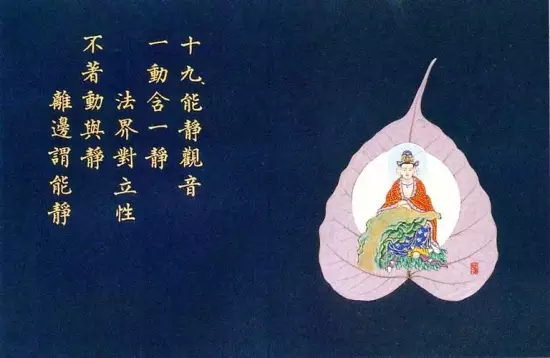 十九、能靜觀音
一動含一靜
法界對立性
不著動與靜
離邊謂能靜